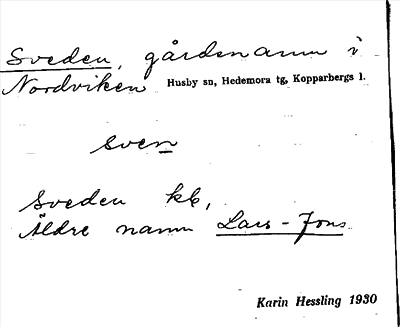 Sveden, gårdenamn i
Nordviken Husby sn, Hedemora tg, Kopparbergs l.
sven
Sveden kb,
Äldre namn Lars-Jons
Karin Hessling 1930